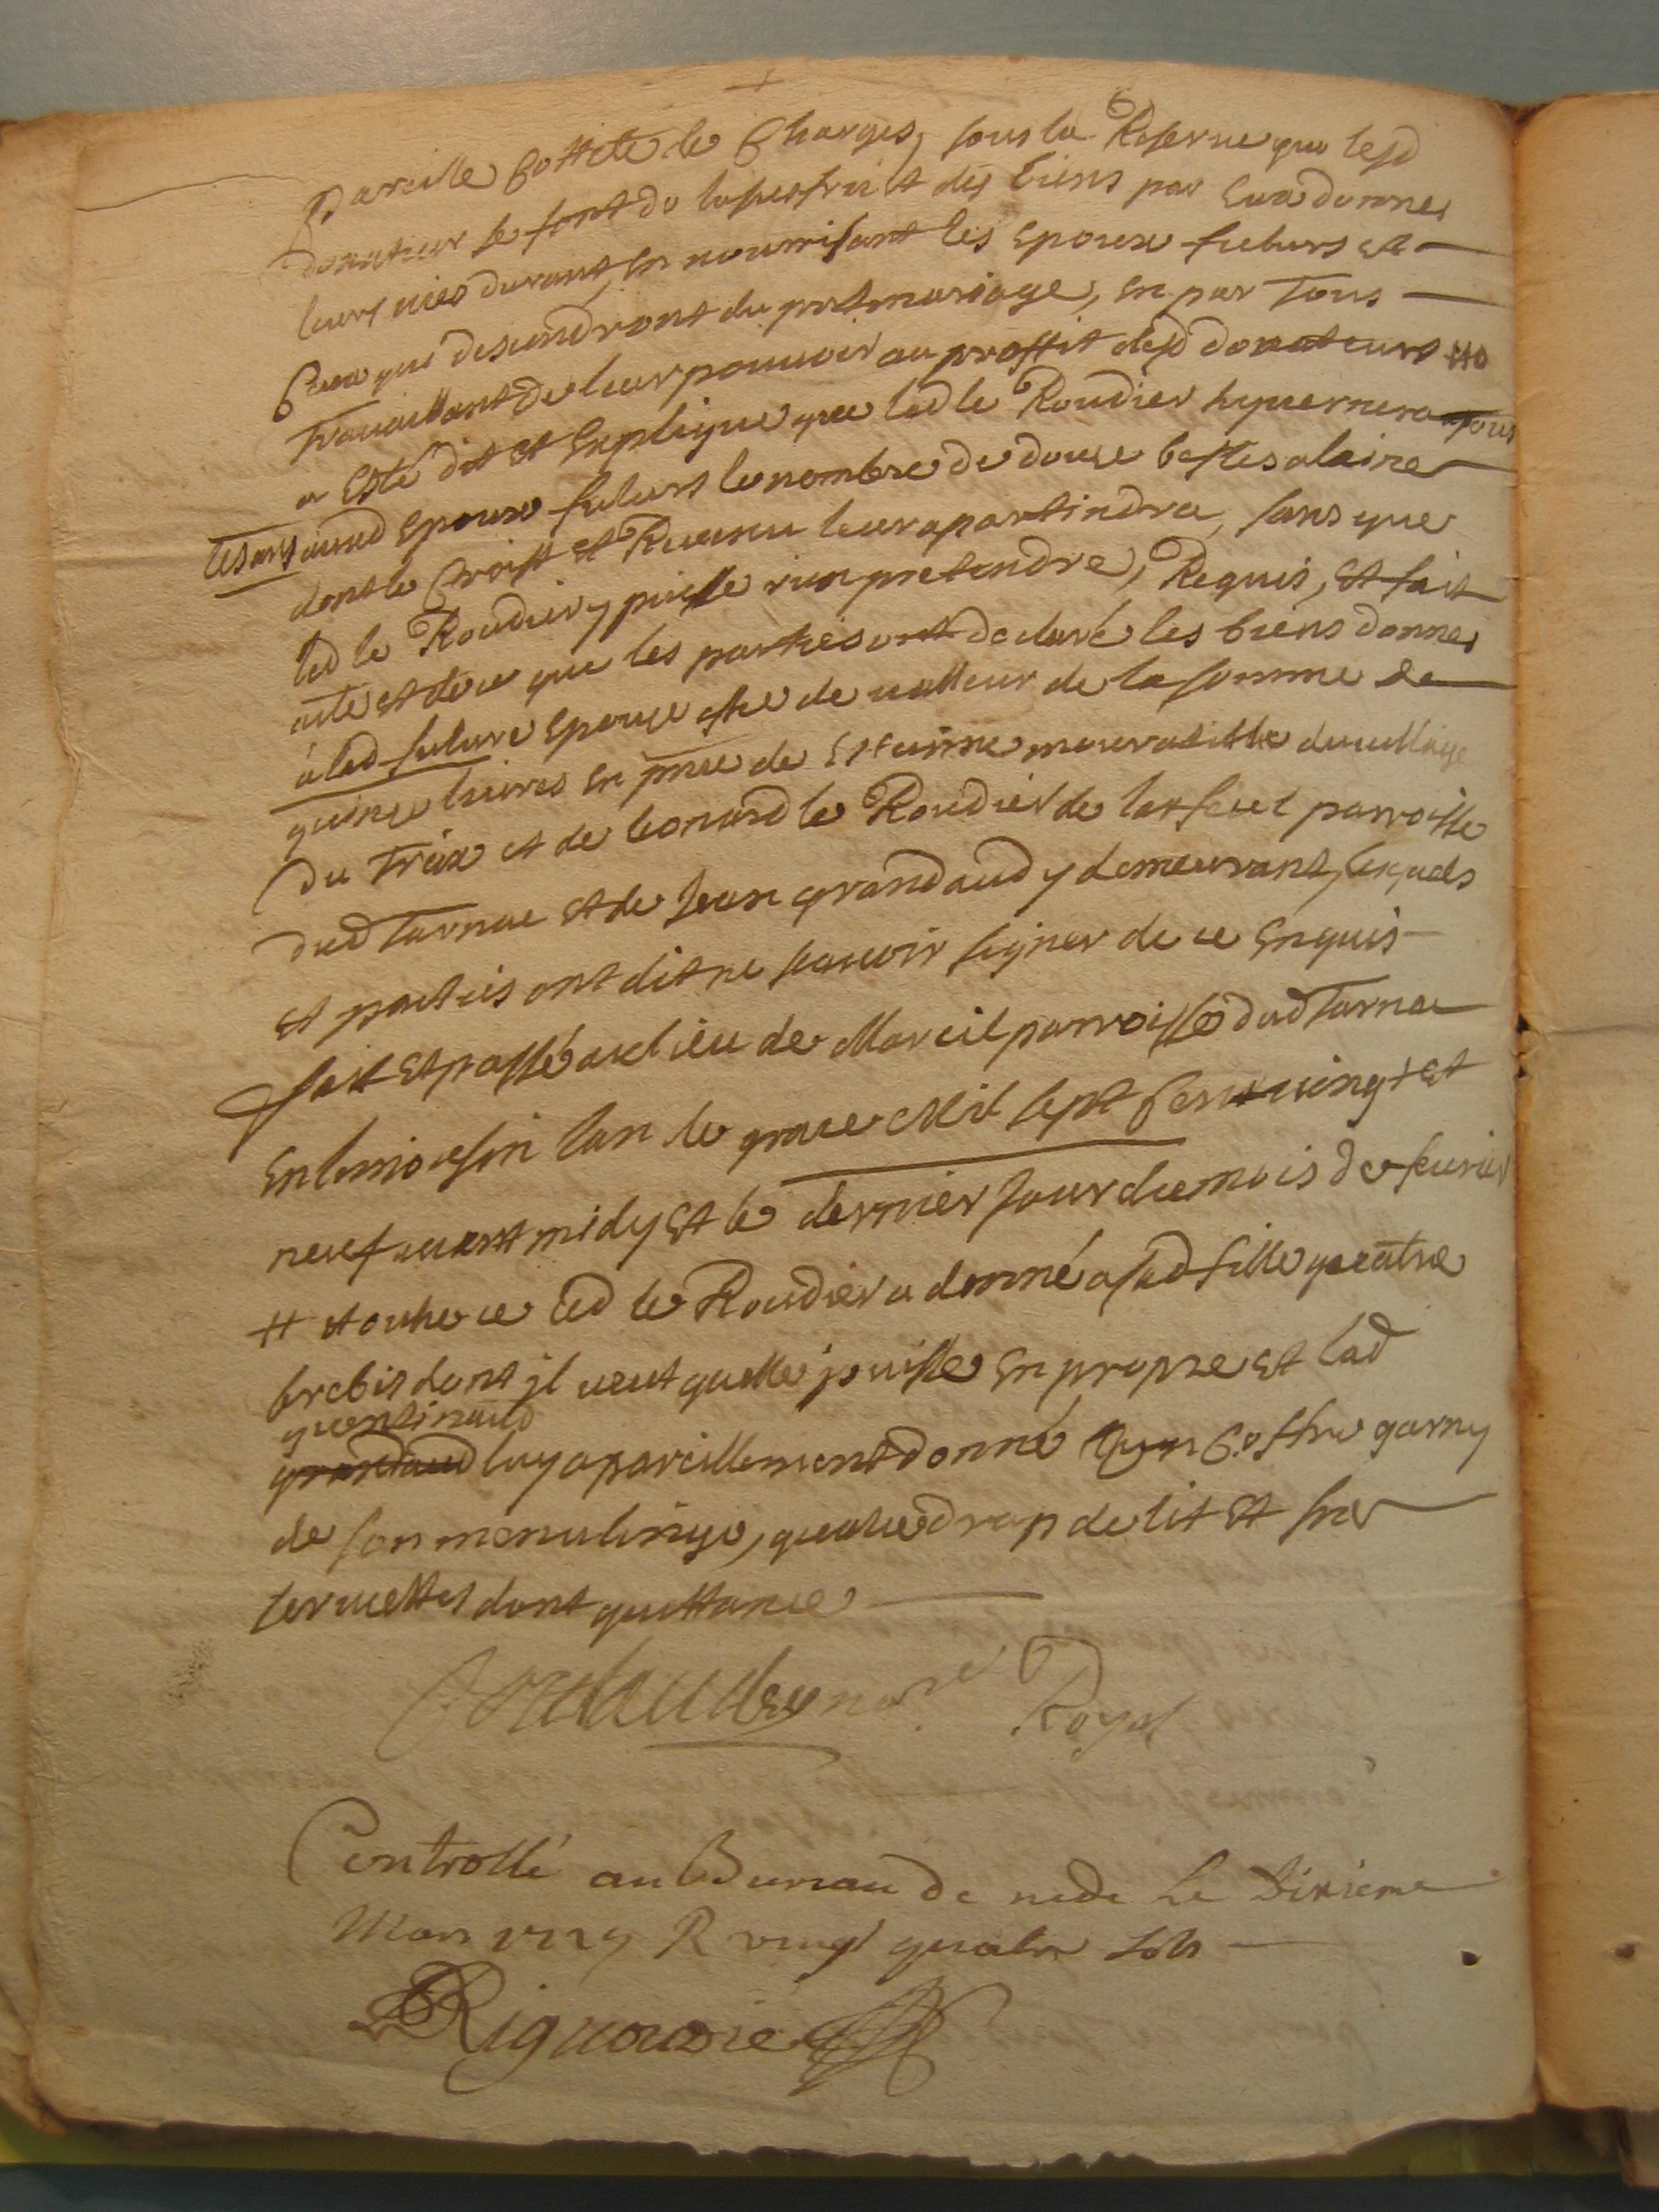 Pareille Cottité de Charges, sous la Reserve que lesd
donateur se font de lusuffruit des biens par Eux donnes
leurs vies durant, En nourrisant les Epoux futurs et
Ceux qui desendront du prnt mariage, En par Tous
Travaillant de leur pouvoir au proffit desd donateurs #
a Esté dit et Explique que led le Roudier hyvernera tous
les ans ausd Epoux futurs le nombre de douze bestes a laine
dont le Croist et Revenu leur apartindra, sans que
led le Roudier y puisse rien pretendre, Requis, Et fait
acte et de ce que les parties ont declaré les biens donnes
a lad future Epouze estre de valleur de la somme de
quinze livres En pnce de Etienne du village
Du Treix et de leonard le Roudier de parroisse
dud Tarnac et de Jean grandaud y demeurant, lequels
et parties ont dit ne scavoir signer de ce Enquis
fait Et passé au lieu de Marcil parroisse dud Tarnac
En limousin lan de grace Mil sept Cent vingt et
neuf avant midy Et le dernier Jour du mois de fevrier
# et outre ce led le Roudier a donné a sad fille quatre
brebis dont jl veut quelle jouisse En propre et lad
quentinaud
grandaud luy a pareillement donné un Coffre garny
de son menu linge, quatre drap de lit et six
serviettes dont quittance
nore Royal
Controllé au Bureau de nede Le Dixieme
Mars 1729 R vingt quatre sols